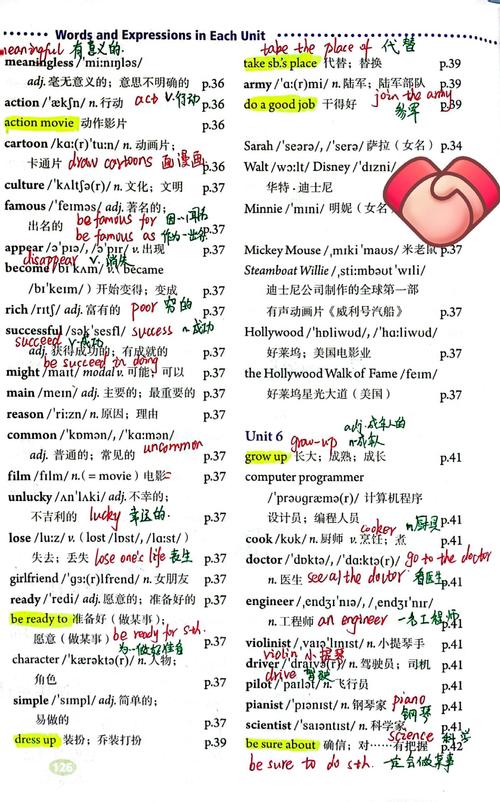 Words and Expressions in Each Unit
meaningful 有意义的.
meaningless /ˈmiːnɪŋləs/
adj. 毫无意义的；意思不明确的 p.36
action /ˈækʃn/ n. 行动 act v.行动 p.36
action movie 动作影片 p.36
cartoon /kɑː(r)ˈtuːn/ n. 动画片；
卡通片 draw cartoons 画漫画 p.36
culture /ˈkʌltʃə(r)/ n. 文化；文明 p.37
famous /ˈfeɪməs/ adj. 著名的；
be famous for 因…闻名
出名的 p.37
be famous as 作为…出名
appear /əˈpɪə/, /əˈpɪr/ v. 出现 p.37
disappear v. 消失
become /bɪˈkʌm/ v. (became
/bɪˈkeɪm/) 开始变得；变成 p.37
rich /rɪtʃ/ adj. 富有的 poor 穷的 p.37
successful /səkˈsesfl/ success n.成功
succeed v.成功
adj. 获得成功的；有成就的 p.37
be succeed in doing
might /maɪt/ modal v. 可能；可以 p.37
main /meɪn/ adj. 主要的；最重要的 p.37
reason /ˈriːzn/ n. 原因；理由 p.37
common /ˈkɒmən/, /ˈkɑːmən/
uncommon
adj. 普通的；常见的 p.37
film /fɪlm/ n. (= movie) 电影 p.37
unlucky /ʌnˈlʌki/ adj. 不幸的；
不吉利的 lucky 幸运的. p.37
lose /luːz/ v. (lost /lɒst/, /lɑːst/)
失去；丢失 lose one's life 丧生 p.37
girlfriend /ˈɡɜː(r)lfrend/ n. 女朋友 p.37
ready /ˈredi/ adj. 愿意的；准备好的 p.37
be ready to 准备好（做某事）；
愿意（做某事） be ready for sth. p.37
为…做好准备
character /ˈkærəktə(r)/ n. 人物；
角色 p.37
simple /ˈsɪmpl/ adj. 简单的；
易做的 p.37
dress up 装扮；乔装打扮 p.39
126
take the place of 代替
take sb.'s place 代替；替换 p.39
army /ˈɑː(r)mi/ n. 陆军；陆军部队 p.39
join the army
do a good job 干得好 p.39
参军
Sarah /ˈseərə/, /ˈserə/ 萨拉（女名） p.34
Walt /wɔːlt/ Disney /ˈdɪzni/
华特·迪士尼
Minnie /ˈmɪni/ 明妮（女名
Mickey Mouse /ˌmɪki ˈmaʊs/ 米老鼠 p.37
Steamboat Willie /ˌstiːmbəʊt ˈwɪli/
迪士尼公司制作的全球第一部
有声动画片《威利号汽船》 p.37
Hollywood /ˈhɒliwʊd/, /ˈhɑːliwʊd/
好莱坞；美国电影业 p.37
the Hollywood Walk of Fame /feɪm/
好莱坞星光大道（美国） p.37
adj.成年人的
Unit 6 grow-up n.成年人
grow up 长大；成熟；成长 p.41
computer programmer
/ˈprəʊɡræmə(r)/ 计算机程序
设计员；编程人员 p.41
cooker n.厨具
cook /kʊk/ n. 厨师 v. 烹饪；煮 p.41
doctor /ˈdɒktə/, /ˈdɑːktə(r)/ go to the doctor
n. 医生 see a/the doctor 看医生 p.41
engineer /ˌendʒɪˈnɪə/, /ˌendʒɪˈnɪr/
n. 工程师 an engineer 一名工程师 p.41
violinist /ˌvaɪəˈlɪnɪst/ n. 小提琴手 p.41
violin 小提琴
driver /ˈdraɪvə(r)/ n. 驾驶员；司机 p.41
drive 驾驶
pilot /ˈpaɪlət/ n. 飞行员 p.41
pianist /ˈpɪənɪst/ n. 钢琴家 piano p.41
钢琴
scientist /ˈsaɪəntɪst/ n. 科学家 p.41
science 科学
be sure about 确信；对……有把握 p.42
be sure to do sth. 一定会做某事